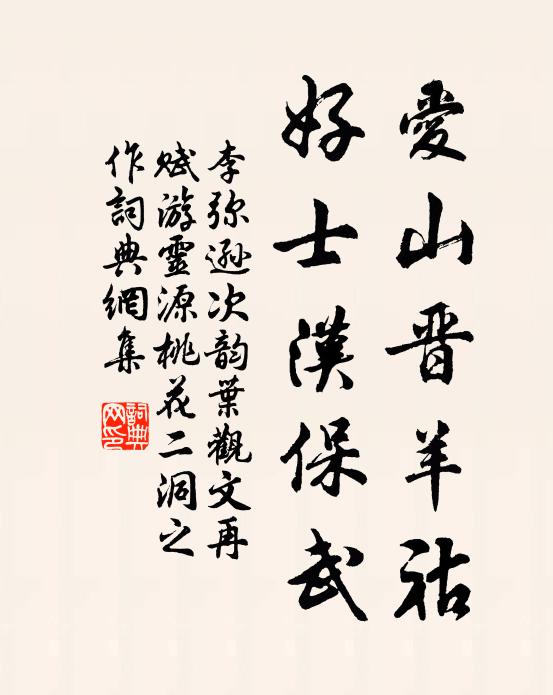 愛山晋羊祜
好士漢保武
李弥遜次韵葉觀文再
賦游靈源桃花二洞之
作詞典網集
詞典
网印